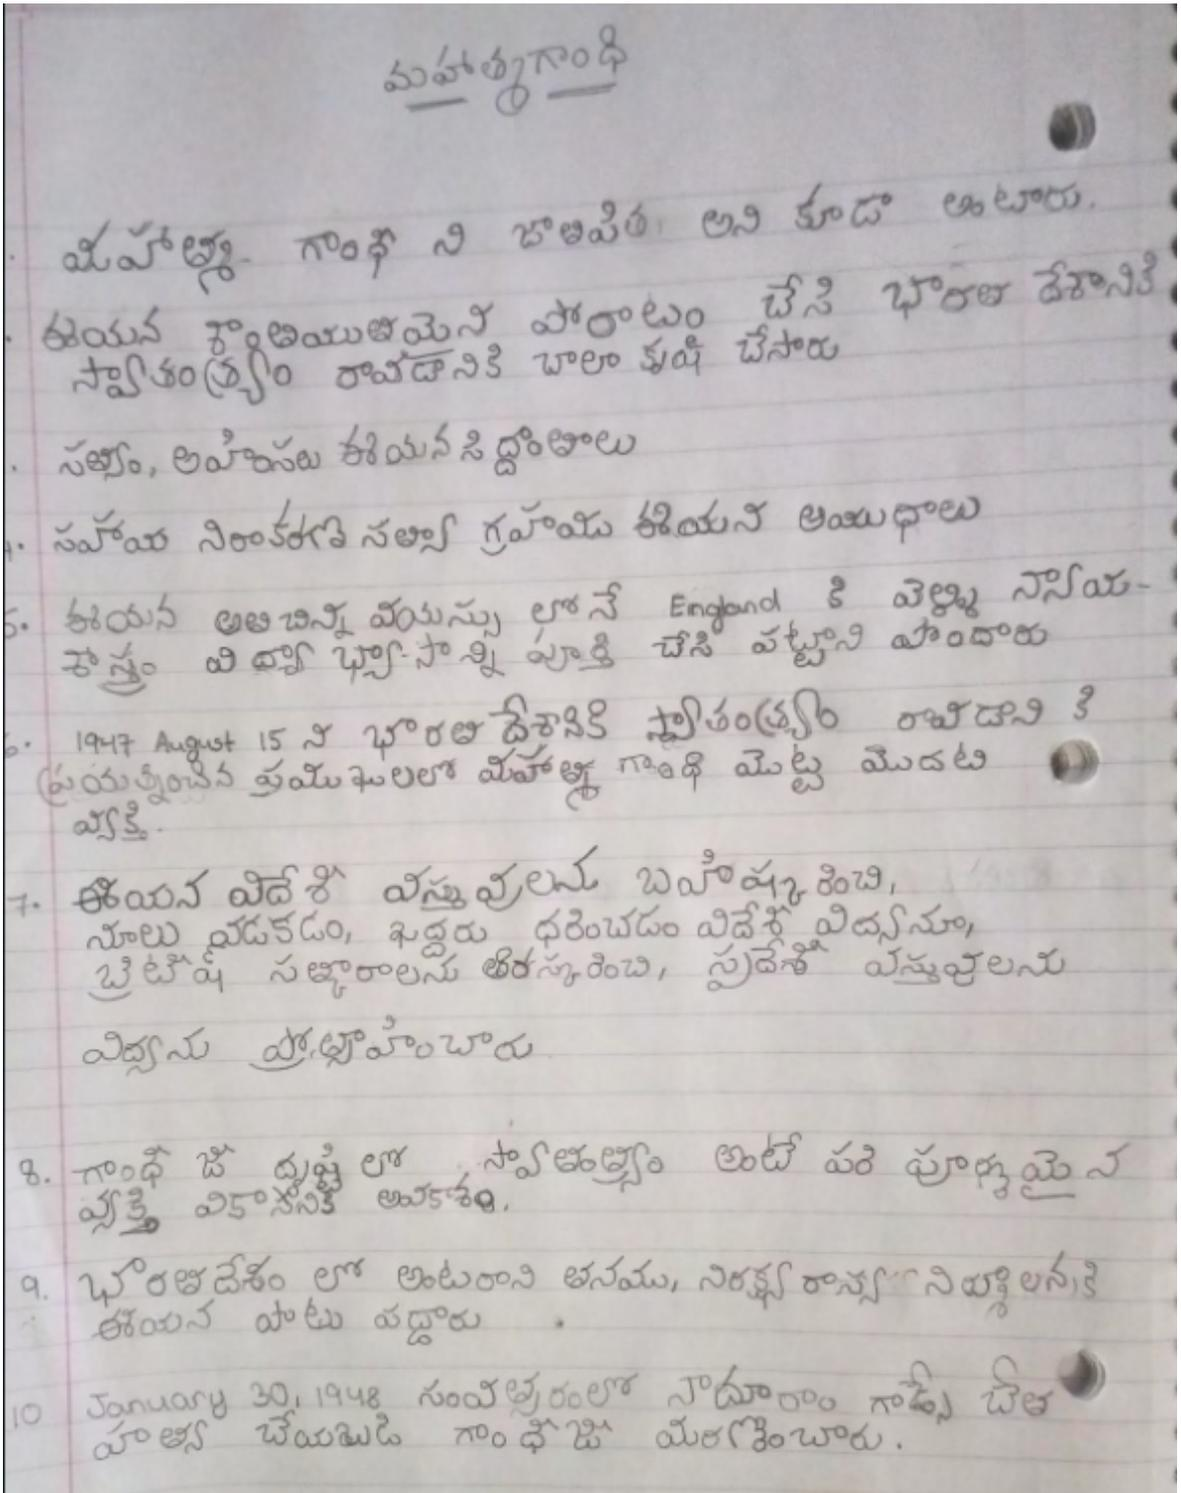 మహాత్మగాంధి
మహాత్మ గాంధీ ని జాతిపిత అని కూడా అంటారు.
ఈయన శాంతియుతమైన పోరాటం చేసి భారత దేశానికి
స్వాతంత్ర్యం రావడానికి చాలా కృషి చేసారు
సత్యం, అహింసలు ఈయన సిద్ధాంతాలు
4. సహాయ నిరాకరణ సత్యా గ్రహము ఈయన ఆయుధాలు
5. ఈయన అతి చిన్న వయస్సు లోనే England కి వెళ్ళి న్యాయ-
శాస్త్రం విద్యా భ్యాసాన్ని పూర్తి చేసి పట్టాని పొందారు
6. 1947 August 15 న భారత దేశానికి స్వాతంత్ర్యం రావడాని కి
ప్రయత్నించిన ప్రముఖులలో మహాత్మ గాంధీ మొట్ట మొదటి
వ్యక్తి.
7. ఈయన విదేశీ వస్తువులను బహిష్కరించి,
నూలు వడకడం, ఖద్దరు ధరించడం విదేశీ విద్యనూ,
బ్రిటీష్ సత్కారాలను తిరస్కరించి, స్వదేశీ వస్తువులను
విద్యను ప్రోత్సాహించారు
8. గాంధీ జీ దృష్టి లో స్వాతంత్ర్యం అంటే పరి పూర్ణమైన
వ్యక్తి వికాసానికి అవకాశం.
9. భారతదేశం లో అంటరాని తనము, నిరక్ష్య రాస్య నిర్మూలనకి
ఈయన పాటు పడ్డారు
10 January 30, 1948 సంవత్సరంలో నాదూరాం గాడ్సే చేత
హత్య చేయబడి గాంధీజీ మరణించారు.